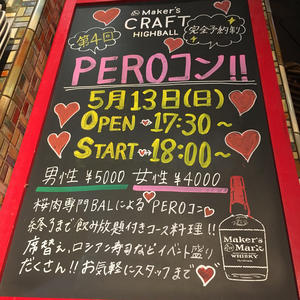 Maker's
CRAFT
HIGHBALL
第4回
完全予約制
PEROコン!!
5月13日(日)
OPEN 17:30~
START 18:00~
男性 ¥5000 女性 ¥4000
桜肉専門BALによるPEROコン
終了まで飲み放題付きコース料理!!
席替え、ロシアン寿司などイベント盛り
だくさん!!お気軽にスタッフまで
Maker's
Mark
WHISKY